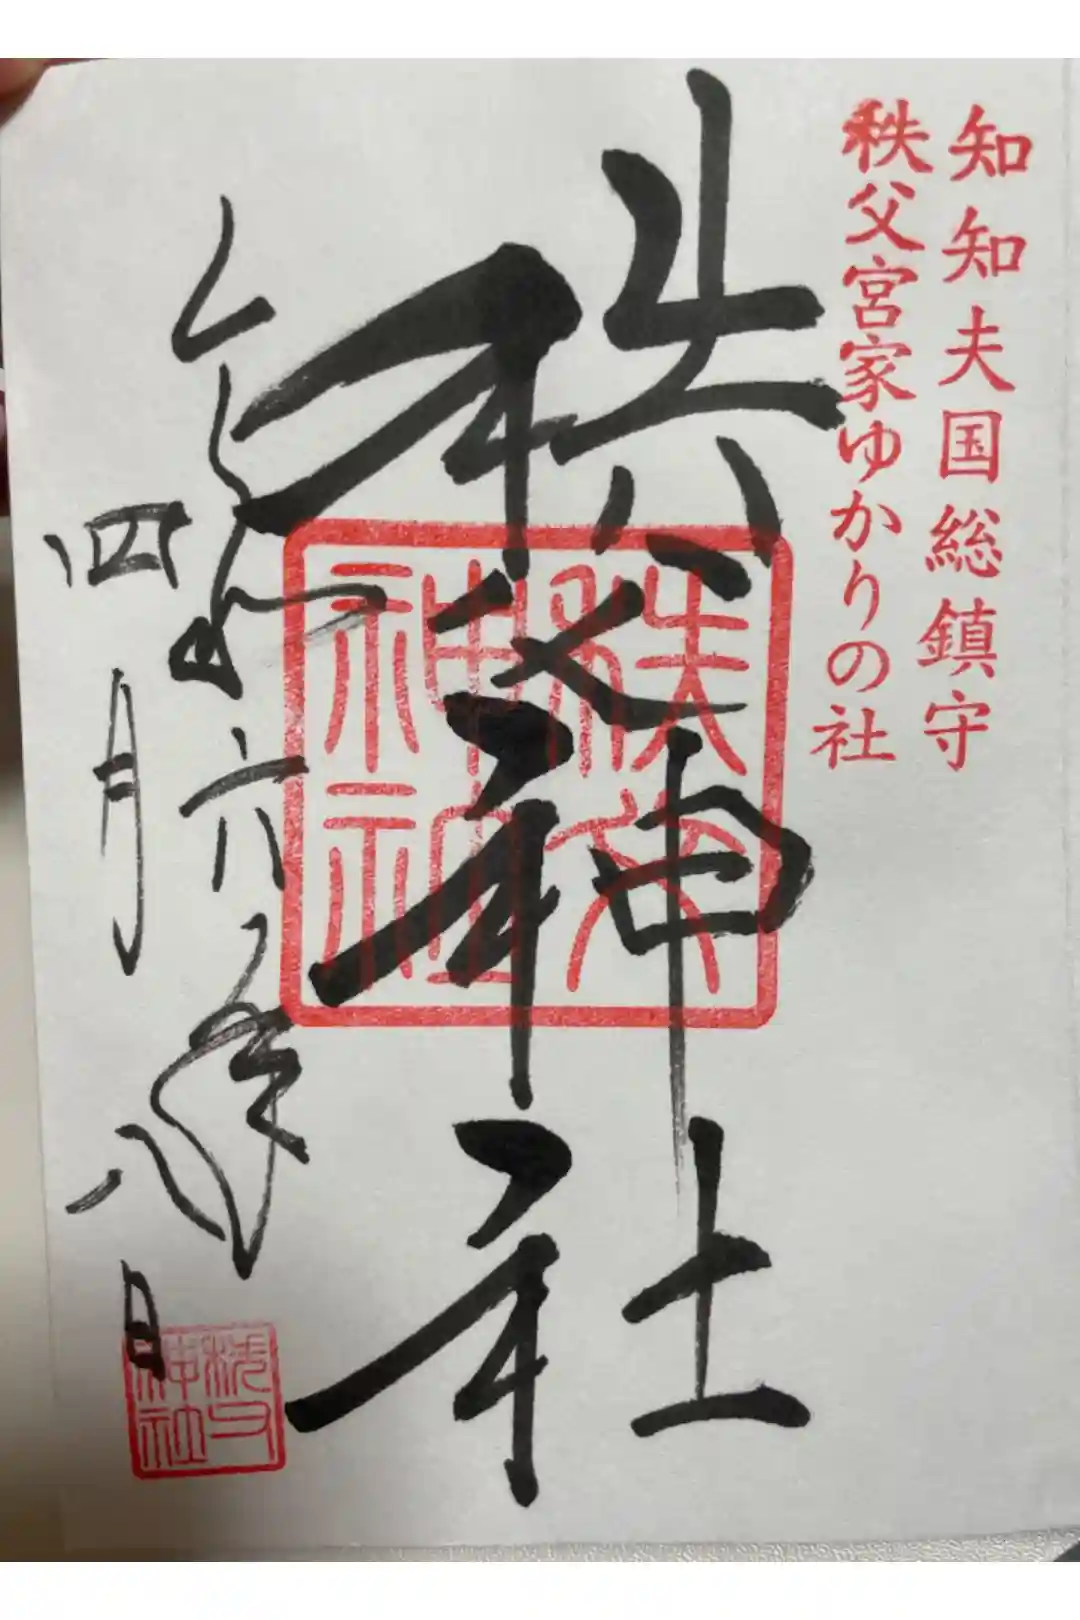 知知夫国総鎮守
秩父宮家ゆかりの社
秩父神社
秩父神社
令和六年
四月八日
秩父神社